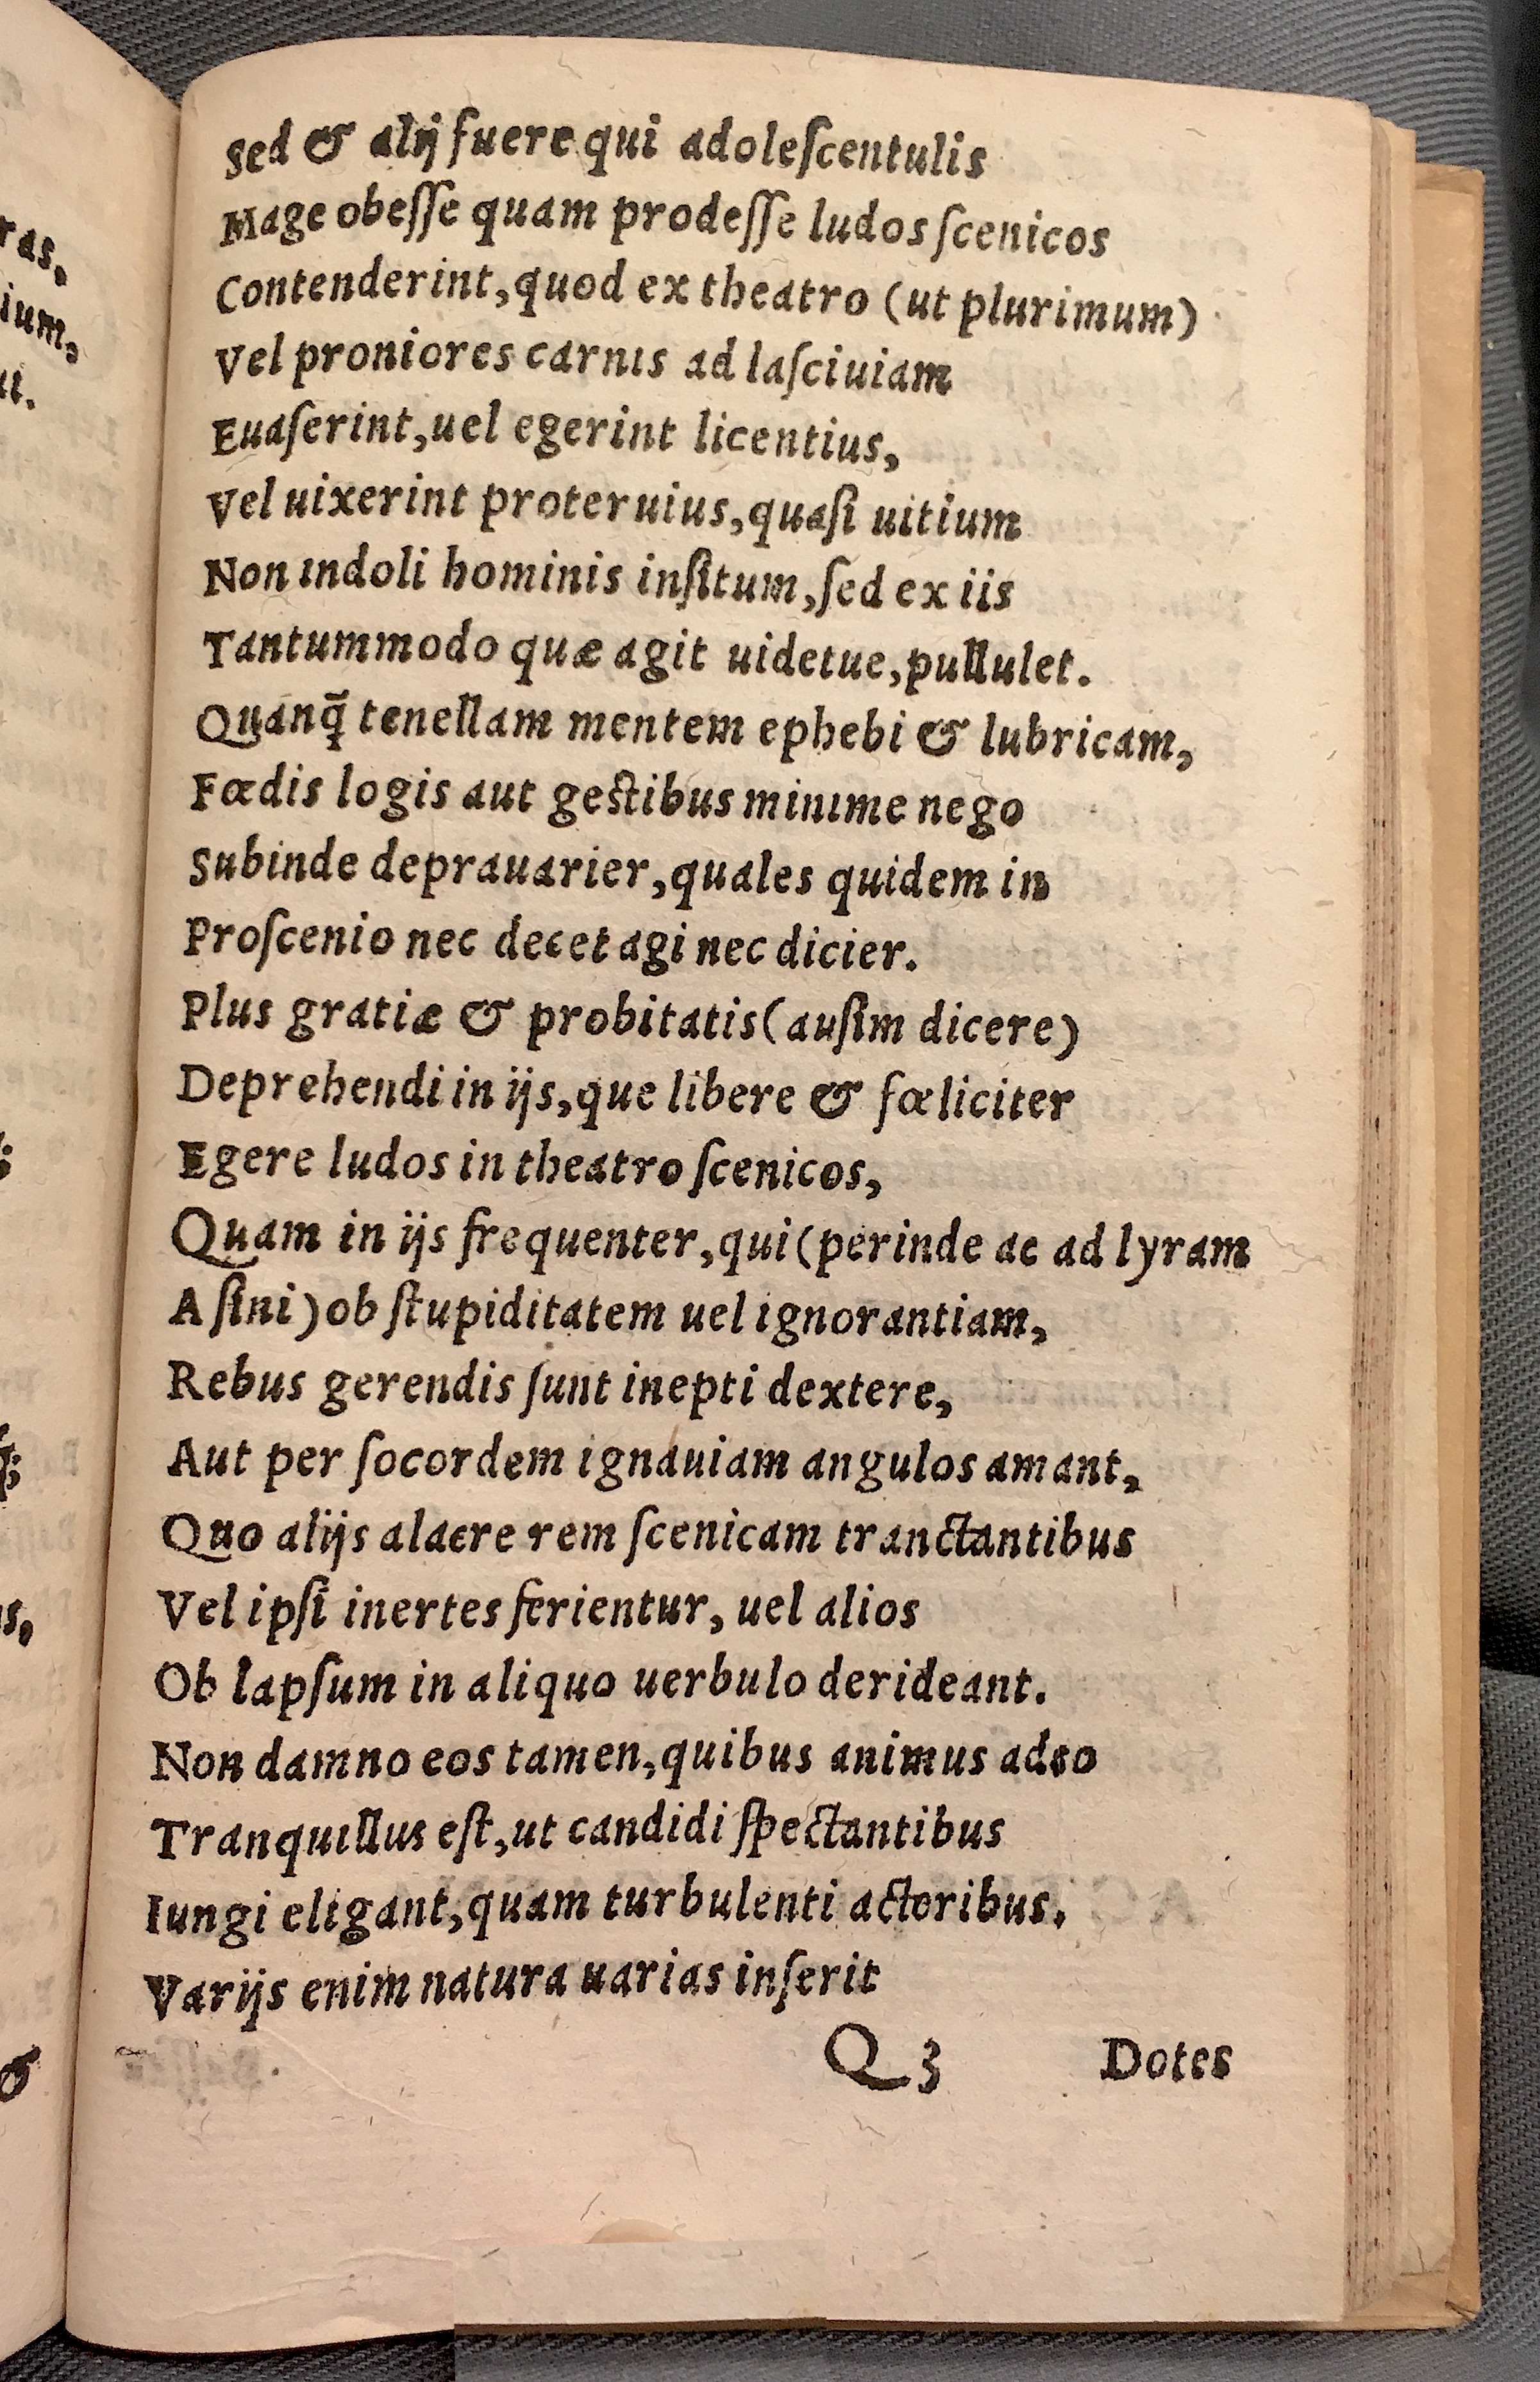 Sed & alij fuere qui adoleſcentulis
Mage obeſſe quam prodeſſe ludos ſcenicos
Contenderint, quod ex theatro (ut plurimum)
Vel proniores carnis ad laſciuiam
Euaſerint, uel egerint licentius,
Vel uixerint proteruius, quaſi uitium
Non indoli hominis inſitum, ſed ex iis
Tantummodo quæ agit uidetue, pullulet.
Quanq̃ tenellam mentem ephebi & lubricam,
Fœdis logis aut geſtibus minime nego
Subinde deprauarier, quales quidem in
Proſcenio nec decet agi nec dicier.
Plus gratiæ & probitatis (auſim dicere)
Deprehendi in ijs, que libere & fœliciter
Egere ludos in theatro ſcenicos,
Quam in ijs frequenter, qui (perinde ac ad lyram
Aſini) ob ſtupiditatem uel ignorantiam,
Rebus gerendis ſunt inepti dextere,
Aut per ſocordem ignauiam angulos amant,
Quo alijs alacre rem ſcenicam tranctantibus
Vel ipſi inertes ferientur, uel alios
Ob lapſum in aliquo uerbulo derideant.
Non damno eos tamen, quibus animus adeo
Tranquillus eſt, ut candidi ſpectantibus
Iungi eligant, quam turbulenti actoribus.
Varijs enim natura uarias inſerit
Q 3 Dotes